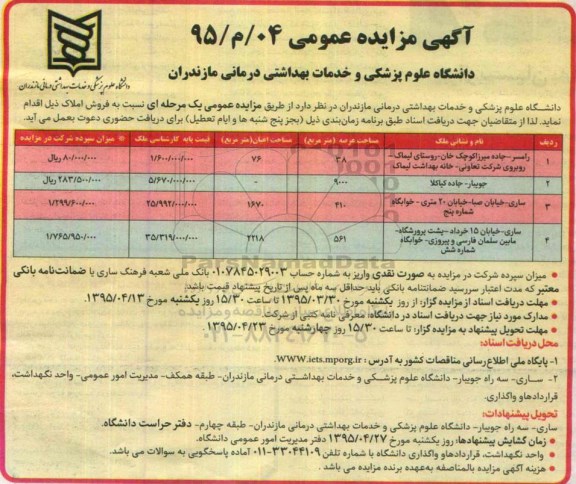 آگهی مزایده عمومی ۰۴/م/۹۵
دانشگاه علوم پزشکی و خدمات بهداشتی درمانی مازندران
دانشگاه علوم پزشکی و خدمات بهداشتی درمانی مازندران
دانشگاه علوم پزشکی و خدمات بهداشتی درمانی مازندران در نظر دارد از طریق مزایده عمومی یک مرحله ای نسبت به فروش املاک ذیل اقدام
نماید. لذا از متقاضیان جهت دریافت اسناد طبق برنامه زمان‌بندی ذیل (بجز پنج شنبه ها و ایام تعطیل) برای دریافت حضوری دعوت بعمل می آید.
ردیف نام و نشانی ملک مساحت عرصه (متر مربع) مساحت اعیان(متر مربع) قیمت پایه کارشناسی ملک میزان سپرده شرکت در مزایده
۱ رامسر-جاده میرزاکوچک خان-روستای لیماک- روبروی شرکت تعاونی- خانه بهداشت لیماک ۳۸ ۷۶ ۱/۶۰۰/۰۰۰/۰۰۰ ۸۰/۰۰۰/۰۰۰ ریال
۲ جویبار- جاده کیاکلا ۹۰۰۰ - ۵/۶۷۰/۰۰۰/۰۰۰ ۲۸۳/۵۰۰/۰۰۰ ریال
۳ ساری-خیابان صبا-خیابان ۲۰ متری - خوابگاه شماره پنج ۴۱۰ ۱۶۷۰ ۲۵/۹۹۲/۰۰۰/۰۰۰ ۱/۲۹۹/۶۰۰/۰۰۰
۴ ساری-خیابان ۱۵ خرداد -پشت پرورشگاه- مابین سلمان فارسی و پیروزی- خوابگاه شماره شش ۵۶۱ ۲۲۱۸ ۳۵/۳۱۹/۰۰۰/۰۰۰ ۱/۷۶۵/۹۵۰/۰۰۰
ParsNamadData
میزان سپرده شرکت در مزایده به صورت نقدی واریز به شماره حساب ۰۱۰۷۸۴۵۰۲۹۰۰۳ بانک ملی شعبه فرهنگ ساری یا ضمانت‌نامه بانکی
معتبر که مدت اعتبار سررسید ضمانتنامه بانکی باید حداقل سه ماه پس از تاریخ پیشنهاد قیمت باشد.
مهلت دریافت اسناد از مزایده گزار: از روز یکشنبه مورخ ۱۳۹۵/۰۳/۳۰ تا ساعت ۱۵/۳۰ روز یکشنبه مورخ ۱۳۹۵/۰۴/۱۳.
مدارک مورد نیاز جهت دریافت اسناد در دانشگاه: معرفی نامه کتبی از شرکت.
مهلت تحویل پیشنهاد به مزایده گزار: تا ساعت ۱۵/۳۰ روز چهارشنبه مورخ ۱۳۹۵/۰۴/۲۳.
محل دریافت اسناد:
۱- پایگاه ملی اطلاع رسانی مناقصات کشور به آدرس : www.iets.mporg.ir.
۲- ساری- سه راه جویبار- دانشگاه علوم پزشکی و خدمات بهداشتی درمانی مازندران- طبقه همکف- مدیریت امور عمومی- واحد نگهداشت،
قراردادها و واگذاری.
تحویل پیشنهادات:
ساری- سه راه جویبار- دانشگاه علوم پزشکی و خدمات بهداشتی درمانی مازندران- طبقه چهارم- دفتر حراست دانشگاه.
زمان گشایش پیشنهادها: روز یکشنبه مورخ ۱۳۹۵/۰۴/۲۷ دفتر مدیریت امور عمومی دانشگاه.
واحد نگهداشت، قراردادها و واگذاری دانشگاه با شماره تلفن ۳۳۰۴۴۱۰۹-۰۱۱ آماده پاسخگویی به سوالات می باشد.
هزینه آگهی مزایده بالمناصفه به‌عهده برنده مزایده می باشد .